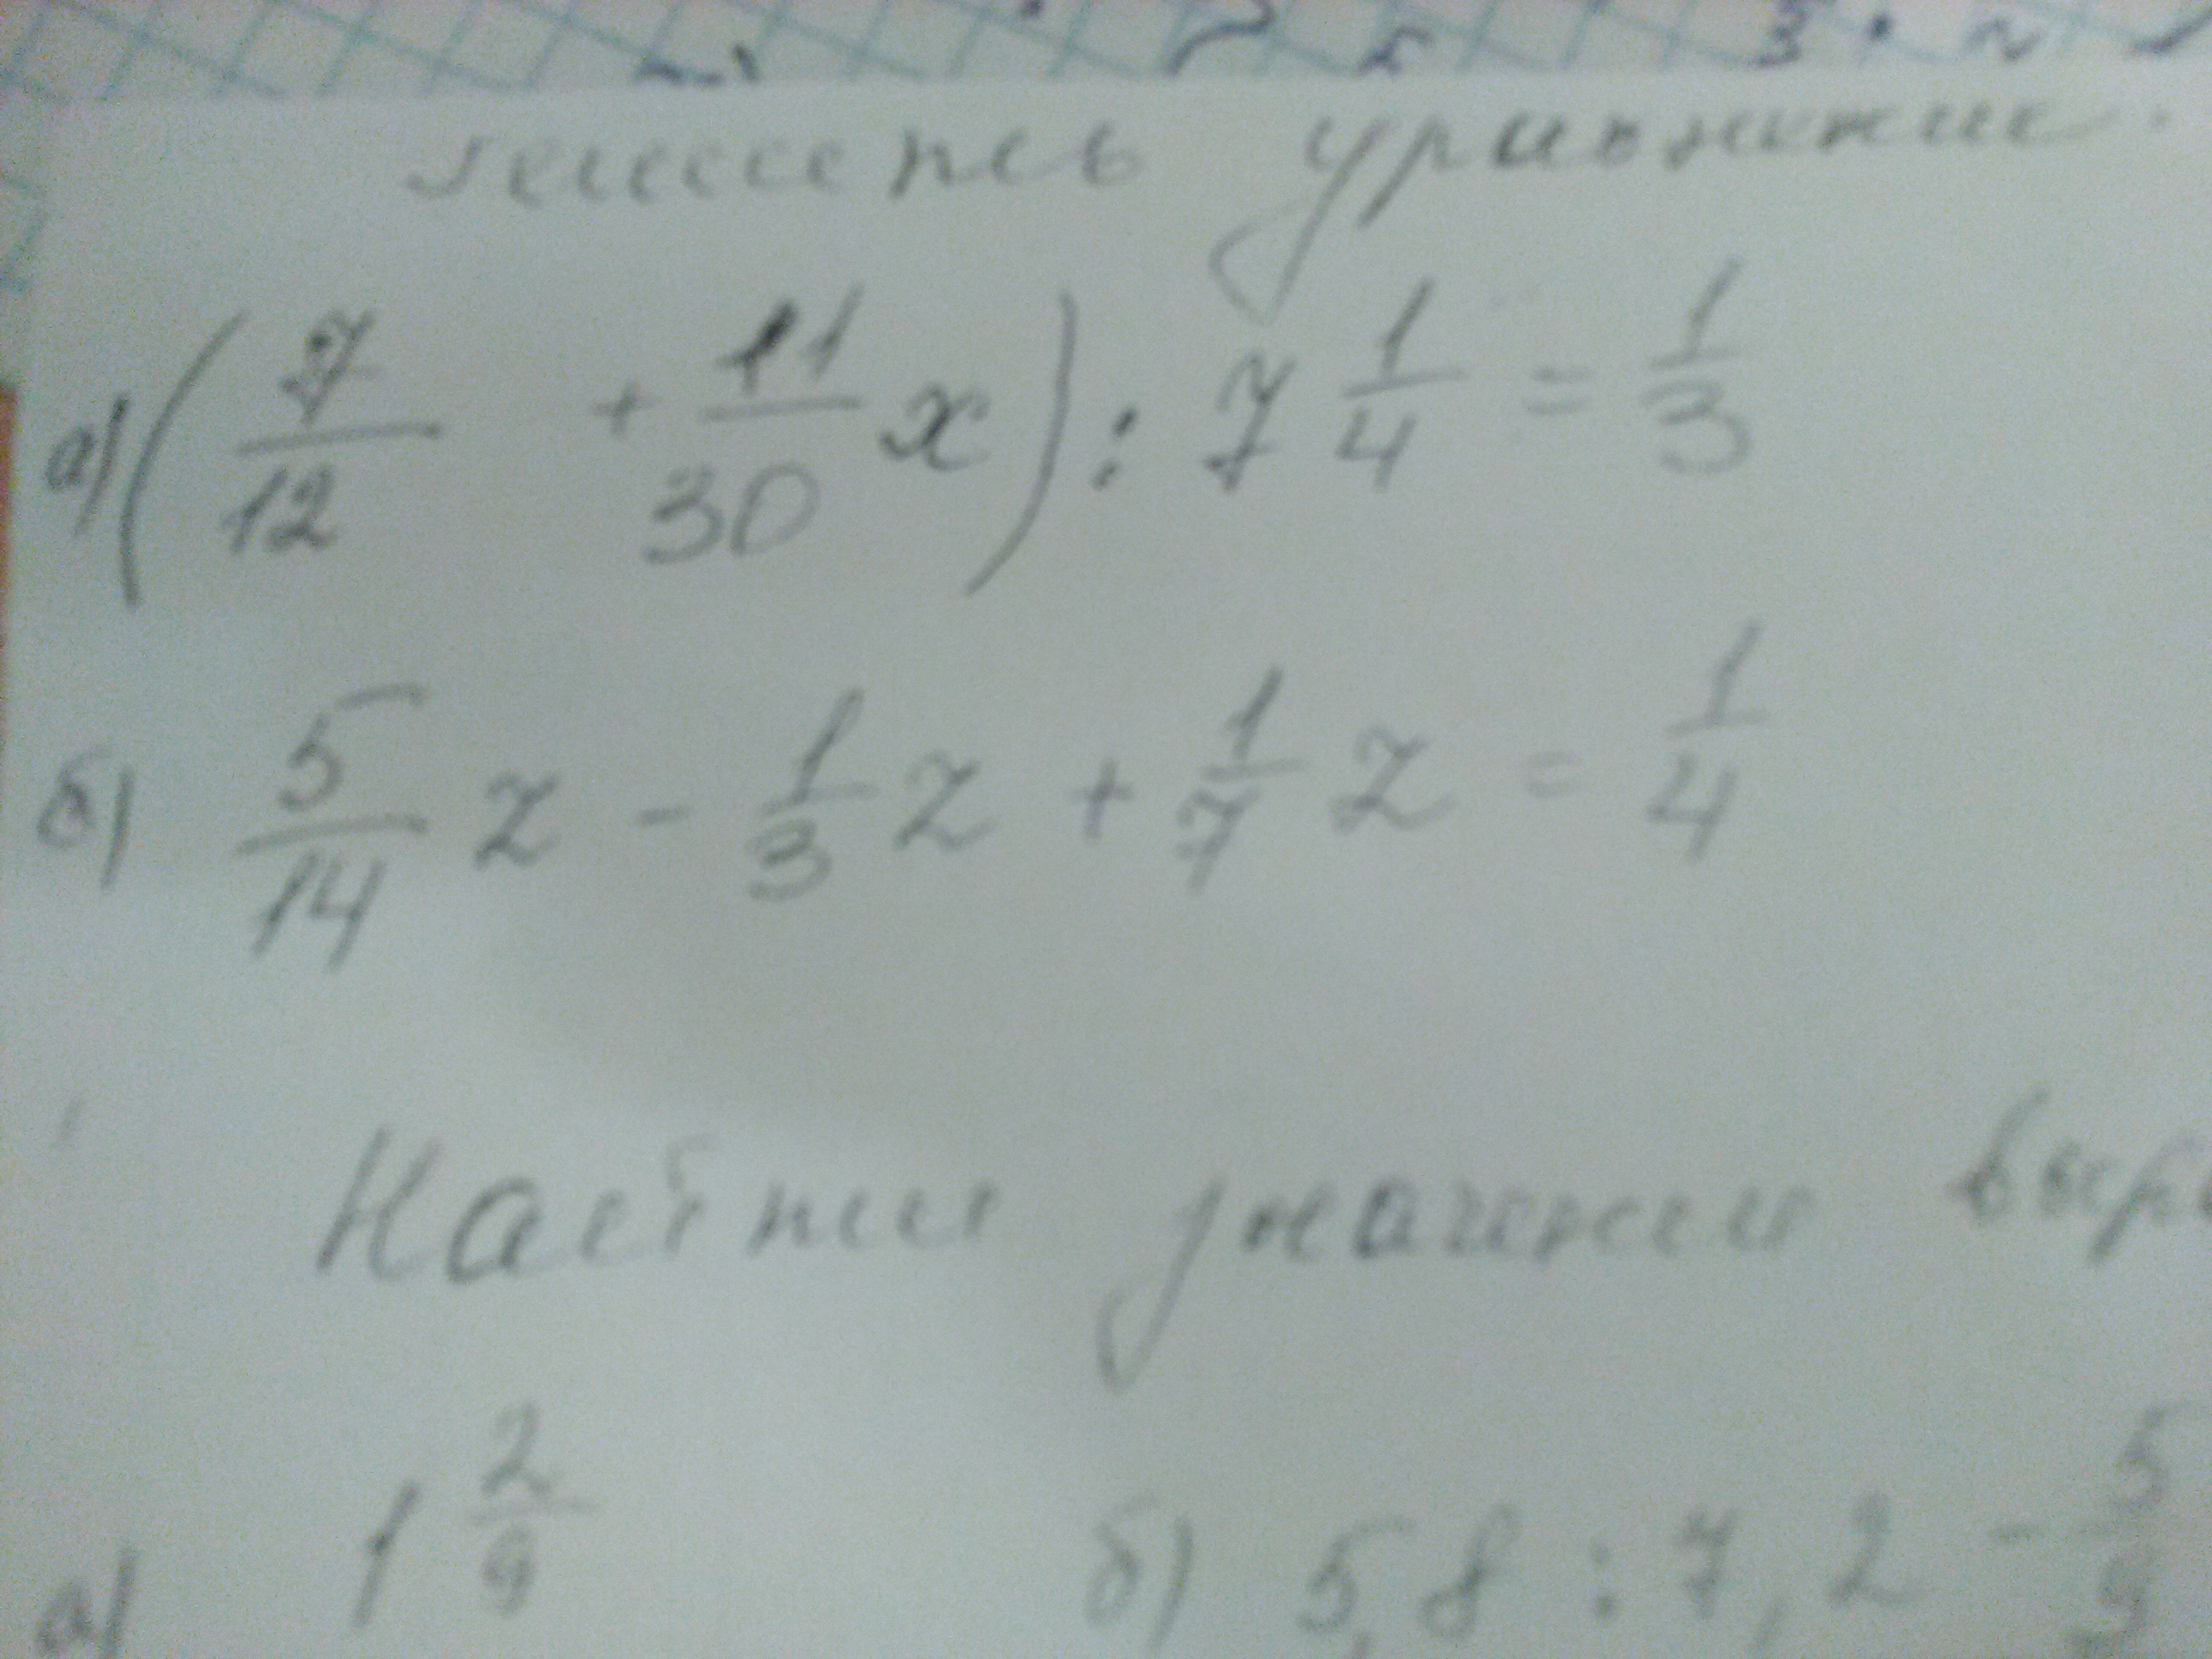 решить уравнение.
а) (7/12 + 11/30 x) : 7 1/4 = 1/3
б) 5/14 z - 1/3 z + 1/7 z = 1/4
Найти значения
а) 1 2/9 б) 5,8 : 7,2 - 5/9